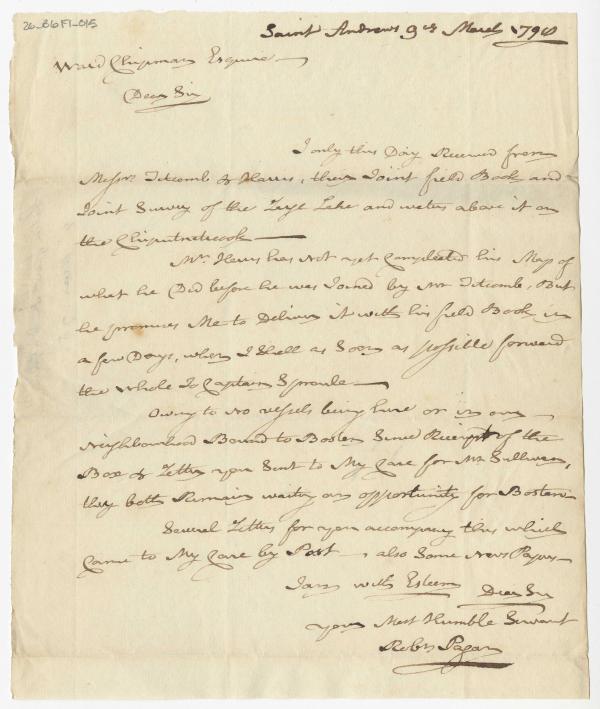 26_B6F1-015
Saint Andrews 9th March 1798
Ward Chipman Esquire
Dear Sir
I only this Day Received from
Messrs. Titcomb & Harris, their Joint field Book and
Joint Survey of the Large Lake and waters above it on
the Chiputnetecook
Mr. Harris has not yet Compleated his Map of
what he Did before he was Joined by Mr Titcomb, But
he promises Me to Deliver it with his field Book in
a few Days, when I Shall as Soon as possible forward
the Whole to Captain Sproule
Owing to No vessels being here or in our
Neighbourhood Bound to Boston Since Receipt of the
Box & Letter you Sent to My Care for Mr. Sullivan,
they both Remain waiting an opportunity for Boston
Several Letters for you accompany this which
Came to My Care by Post, also Some News Papers
I am with Esteem
Dear Sir
your Most Humble Servant
Robt Pagan